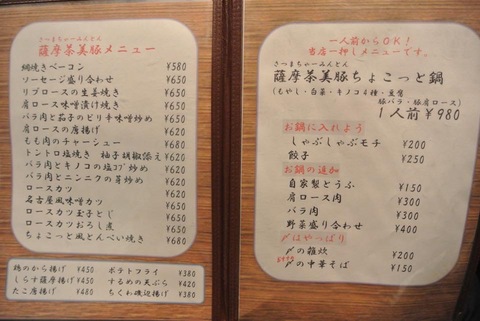 さつまちゃーみんとん
薩摩茶美豚メニュー
網焼きベーコン ¥580
ソーセージ盛り合わせ ¥650
リブロースの生姜焼き ¥650
肩ロース味噌漬け焼き ¥650
バラ肉と茄子のピリ辛味噌炒め ¥650
肩ロースの唐揚げ ¥620
もも肉のチャーシュー ¥680
トントロ塩焼き 柚子胡椒添え ¥620
バラ肉とキノコの塩コブ炒め ¥620
バラ肉とニンニクの芽炒め ¥620
ロースカツ ¥650
名古屋風味噌カツ ¥650
ロースカツ玉子とじ ¥650
ロースカツおろし煮 ¥650
ちょこっと風とんぺい焼き ¥680
鶏のから揚げ ¥450 ポテトフライ ¥380
しらす薩摩揚げ ¥450 するめの天ぷら ¥420
たこ唐揚げ ¥480 ちくわ磯辺揚げ ¥380
一人前からOK!
当店一押しメニューです。
さつまちゃーみんとん
薩摩茶美豚ちょこっと鍋
(もやし・白菜・キノコ4種・豆腐
豚バラ・豚肩ロース)
1人前 ¥980
お鍋に入れよう
しゃぶしゃぶモチ ¥200
餃子 ¥250
お鍋の追加
自家製とうふ ¥150
肩ロース肉 ¥300
バラ肉 ¥300
野菜盛り合わせ ¥400
〆はやっぱり
〆の雑炊 ¥200
〆の中華そば ¥150